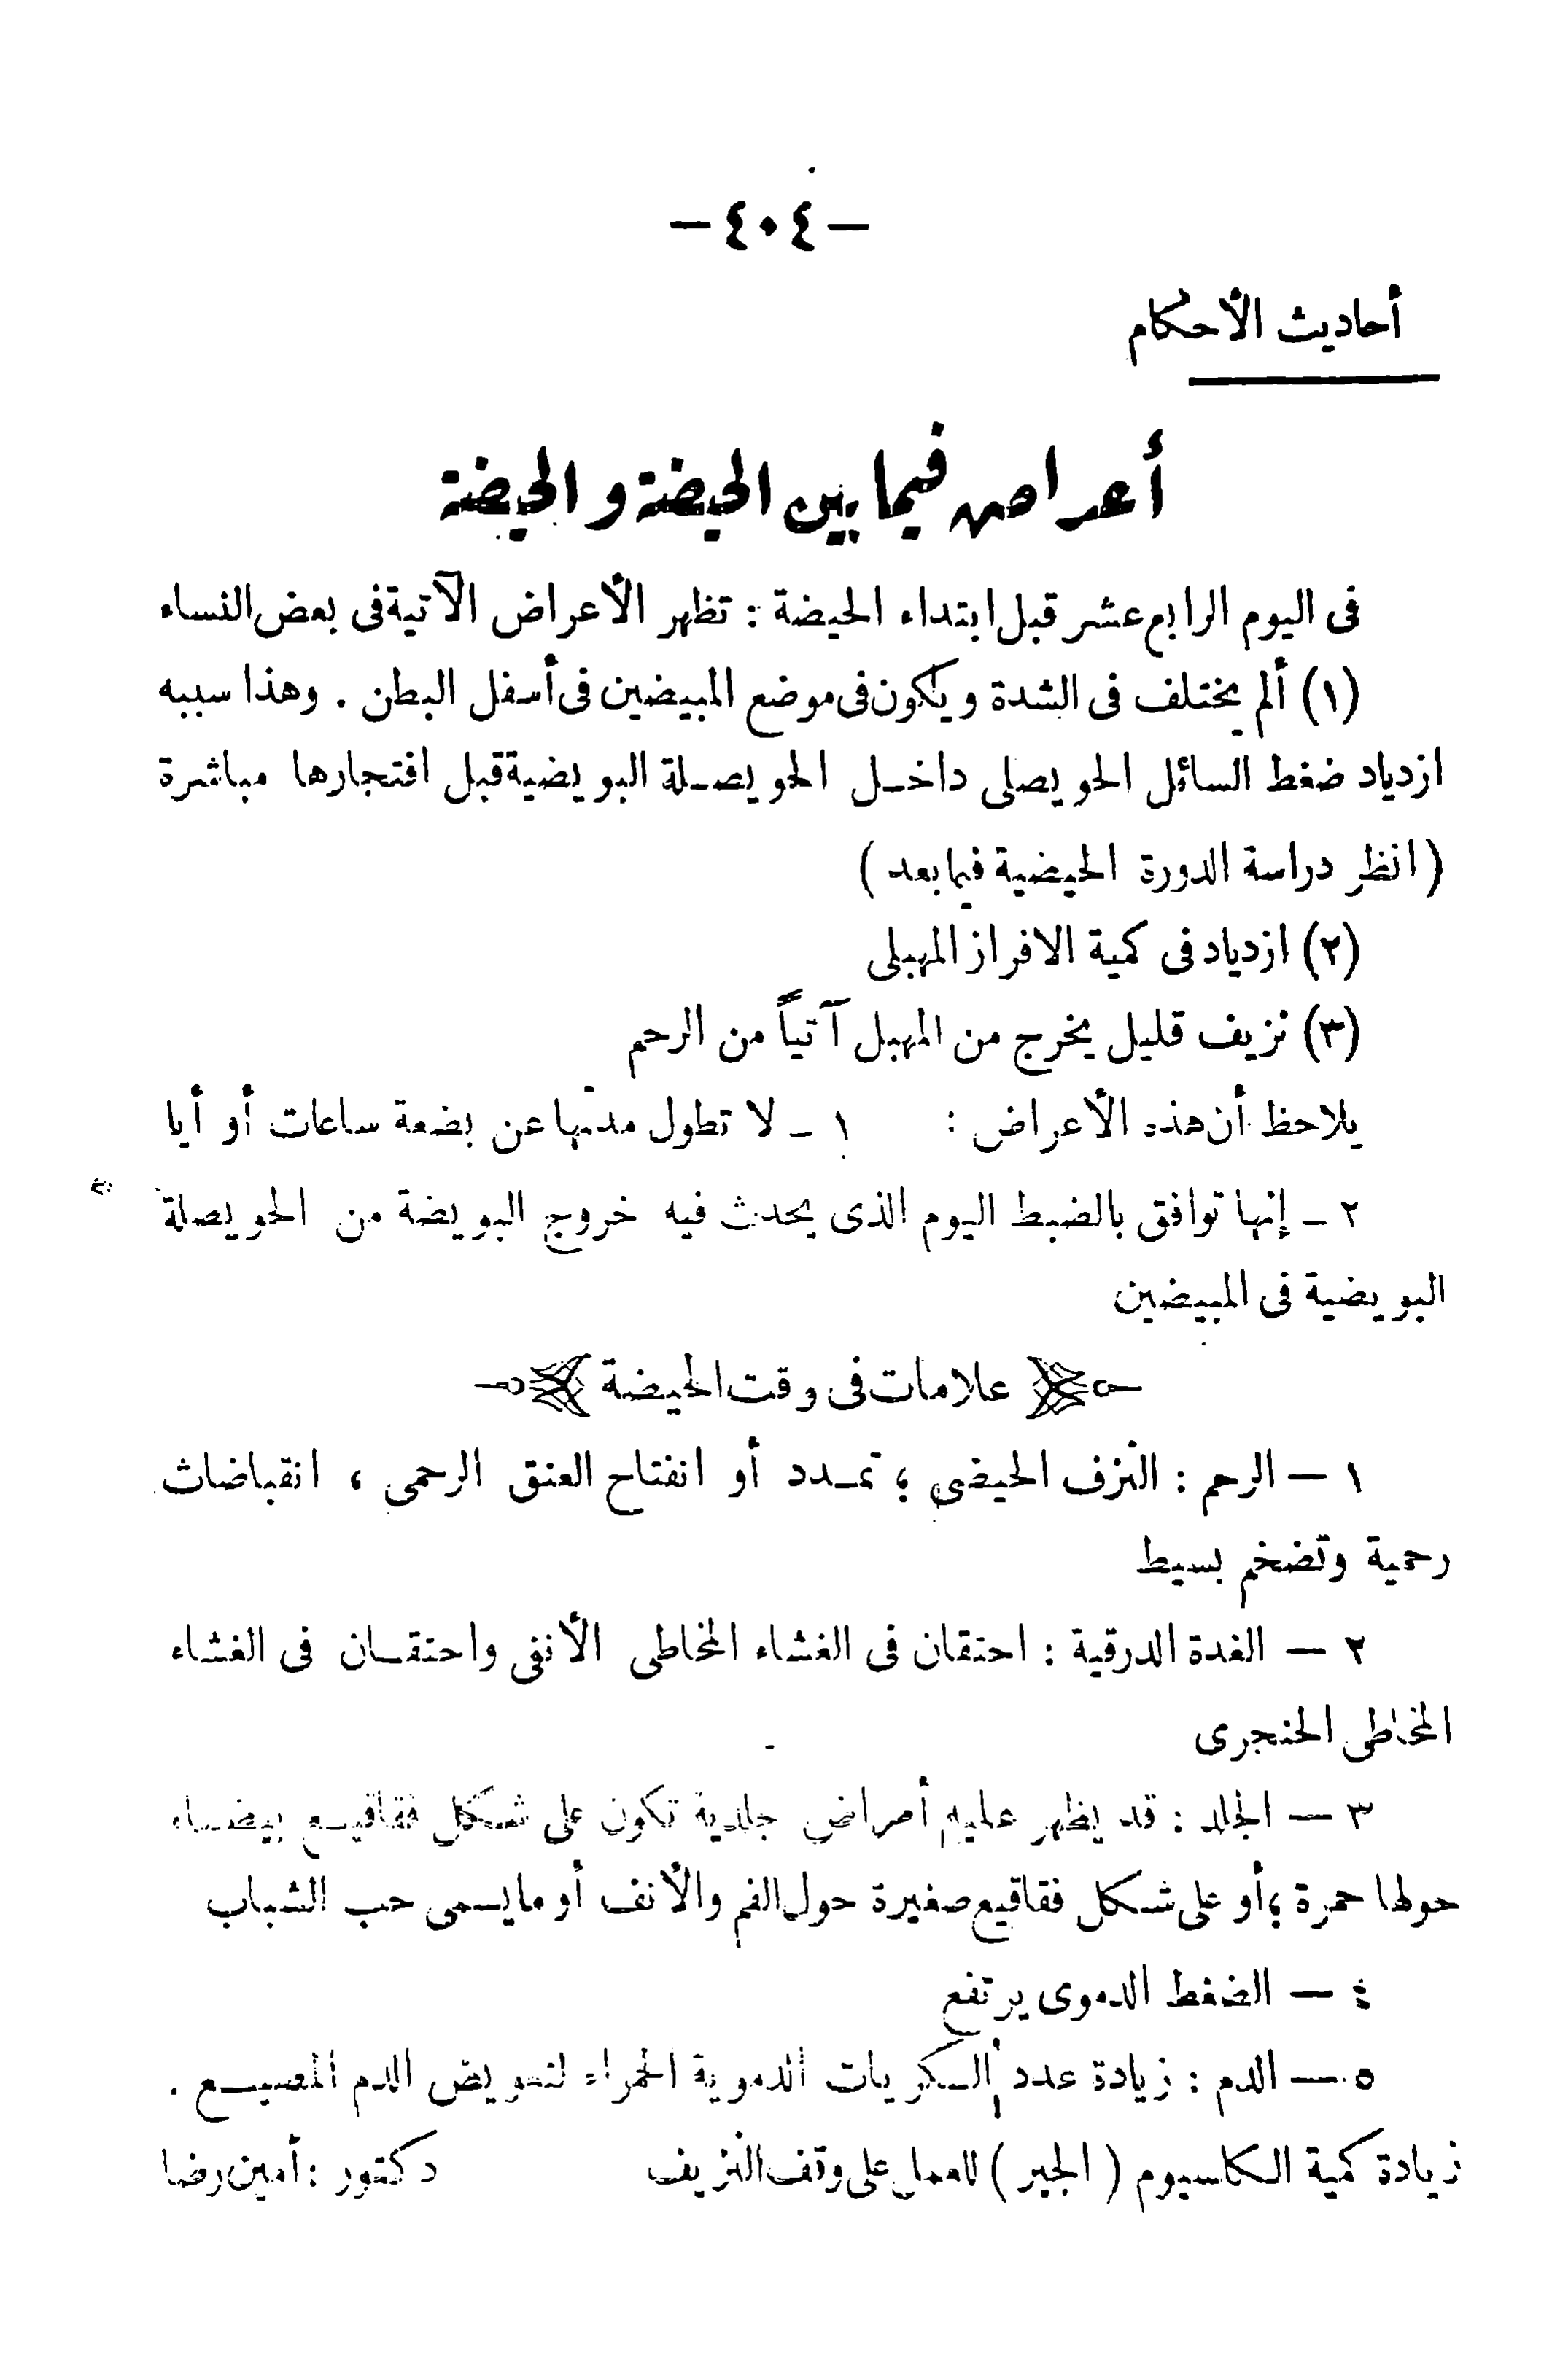 — ٤٠٤ —
أحاديث الأحكام
أعراض فيما بين الحيضة والحيضة
فى اليوم الرابع عشر قبل ابتداء الحيضة : تظهر الأعراض الآتية فى بعض النساء
(١) ألم يختلف فى الشدة ويكون فى موضع المبيضين فى أسفل البطن . وهذا سببه
ازدياد ضغط السائل الحويصلى داخل الحويصلة البويضية قبل افتجارها مباشرة
( انظر دراسة الدورة الحيضية فيما بعد )
(٢) ازدياد فى كمية الافراز المهبلى
(٣) نزيف قليل يخرج من المهبل آتياً من الرحم
يلاحظ أن هذه الأعراض : ١ - لا تطول مدتها عن بضعة ساعات أو أيا
٢ - إنها توافق بالضبط اليوم الذى يحدث فيه خروج البويضة من الحويصلة
البويضية فى المبيضين
علامات فى وقت الحيضة
١ — الرحم : النزف الحيضى ؛ تمدد أو انفتاح العنق الرحمى ، انقباضات
رحمية وتضخم بسيط
٢ — الغدة الدرقية : احتقان فى الغشاء المخاطى الأنفى واحتقان فى الغشاء
المخاطى الحنجرى
٣ — الجلد : قد يظهر عليه أمراض جلدية تكون على شكل فقاقيع بيضاء
حولها حمرة ؛ أو على شكل فقاقيع صغيرة حول الفم والأنف أو ما يسمى حب الشباب
٤ — الضغط الدموى يرتفع
٥ — الدم : زيادة عدد الكريات الدموية الحمراء لتعويض الدم المضيع .
زيادة كمية الكاسيوم ( الجير ) للعمل على وقف النزيف دكتور : أمين رضا